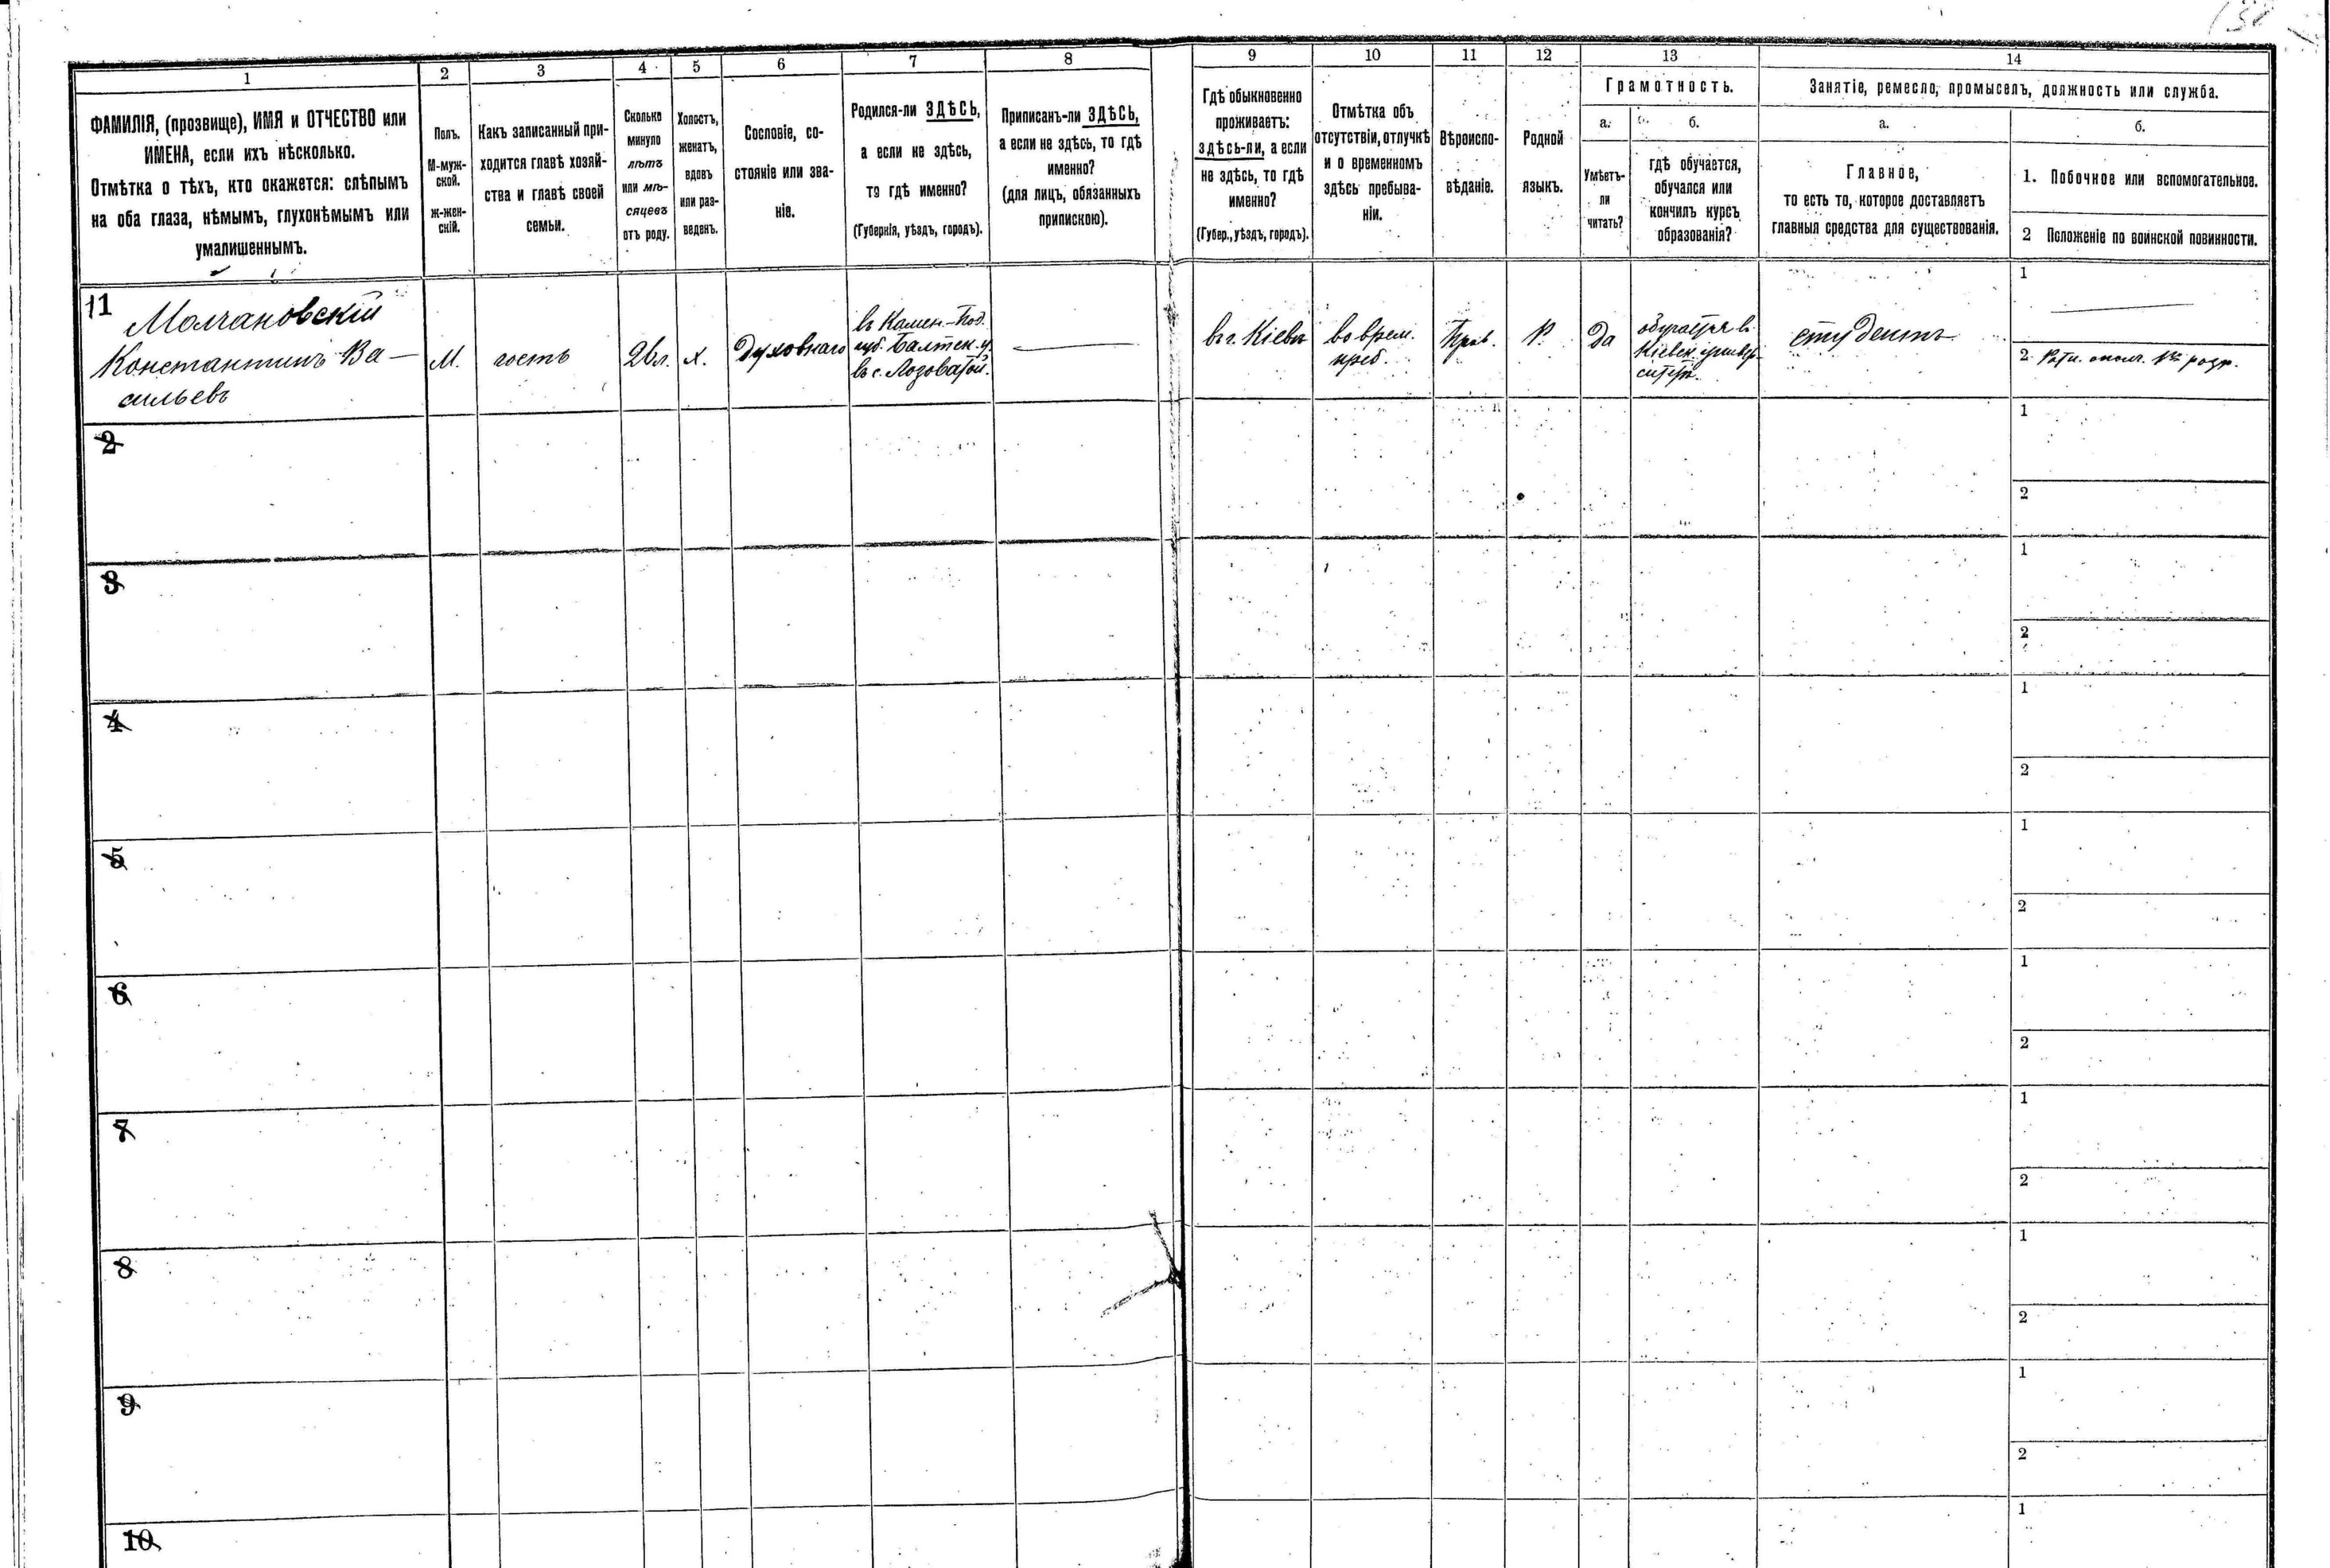 1
2
3
4
5
6
7
8
9
10
11
12
13
14
ФАМИЛІЯ, (прозвище), ИМЯ и ОТЧЕСТВО или
ИМЕНА, если ихъ нѣсколько.
Отмѣтка о тѣхъ, кто окажется: слѣпымъ
на оба глаза, нѣмымъ, глухонѣмымъ или
умалишеннымъ.
Полъ.
М-муж-
ской.
ж-жен-
скій.
Какъ записанный при-
ходится главѣ хозяй-
ства и главѣ своей
семьи.
Сколько
минуло
лѣтъ
или мѣ-
сяцевъ
отъ роду.
Холостъ,
женатъ,
вдовъ
или раз-
веденъ.
Сословіе, со-
стояніе или зва-
ніе.
Родился-ли ЗДѢСЬ,
а если не здѣсь,
то гдѣ именно?
(Губернія, уѣздъ, городъ).
Приписанъ-ли ЗДѢСЬ,
а если не здѣсь, то гдѣ
именно?
(для лицъ, обязанныхъ
припискою).
Гдѣ обыкновенно
проживаетъ:
здѣсь-ли, а если
не здѣсь, то гдѣ
именно?
(Губер., уѣздъ, городъ).
Отмѣтка объ
отсутствіи, отлучкѣ
и о временномъ
здѣсь пребыва-
ніи.
Вѣроиспо-
вѣданіе.
Родной
языкъ.
Грамотность.
а.
Умѣетъ-
ли
читать?
б.
гдѣ обучается,
обучался или
кончилъ курсъ
образованія?
Занятіе, ремесло, промыселъ, должность или служба.
а.
Главное,
то есть то, которое доставляетъ
главныя средства для существованія.
б.
1. Побочное или вспомогательное.
2 Положеніе по воинской повинности.
11
Молчановскій
Константинъ Ва-
сильевъ
М.
гость
26 л.
х.
Духовнаго
въ Камен.-Под.
губ. Балтск. у.
въ с. Лозоватой.
въ г. Кіевѣ
во врем.
преб.
Прав.
Р.
Да
обучается въ
Кіевск. универ-
ситетѣ.
студентъ
1
2 Ратн. ополч. 1го разр.
2
1
2
3
1
2
4
1
2
5
1
2
6
1
2
7
1
2
8
1
2
9
1
2
10
1